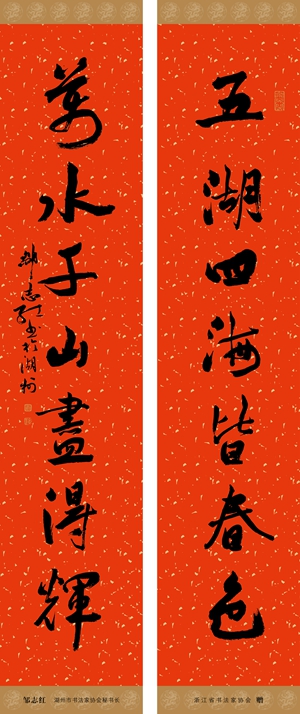 五湖四海皆春色
萬水千山盡得輝
鄒志红书於湖州
浙江省书法家协会 赠
邹志红 湖州市书法家协会秘书长